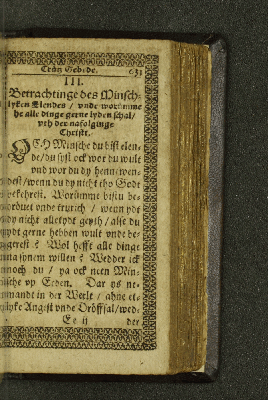 Crütz Gebede. 631
III.
Betrachtinge des Minsch-
lyken Elendes / vnde worümme
he alle dinge gerne lyden schal /
vth der nafolginge
Christi.
OCH Minsche du bist elen-
de / du syst ock wor du wule
vnd wor du dy henn wen-
dest / wenn du dy nicht tho Gode
bekehrest. Worümme bistu be-
dröuet vnde trurich / wenn ydt
dy nicht alletydt geyth / alse du
ydt gerne hebben wult vnde be-
gerest? Wol hefft alle dinge
na synem willen? Wedder ick
noch du / ya ock neen Min-
sche vp Erden. Dar ys ne-
mandt in der Werlt / ahne et-
lyke Angst vnde Dröffsal / wed-
Ee ij der